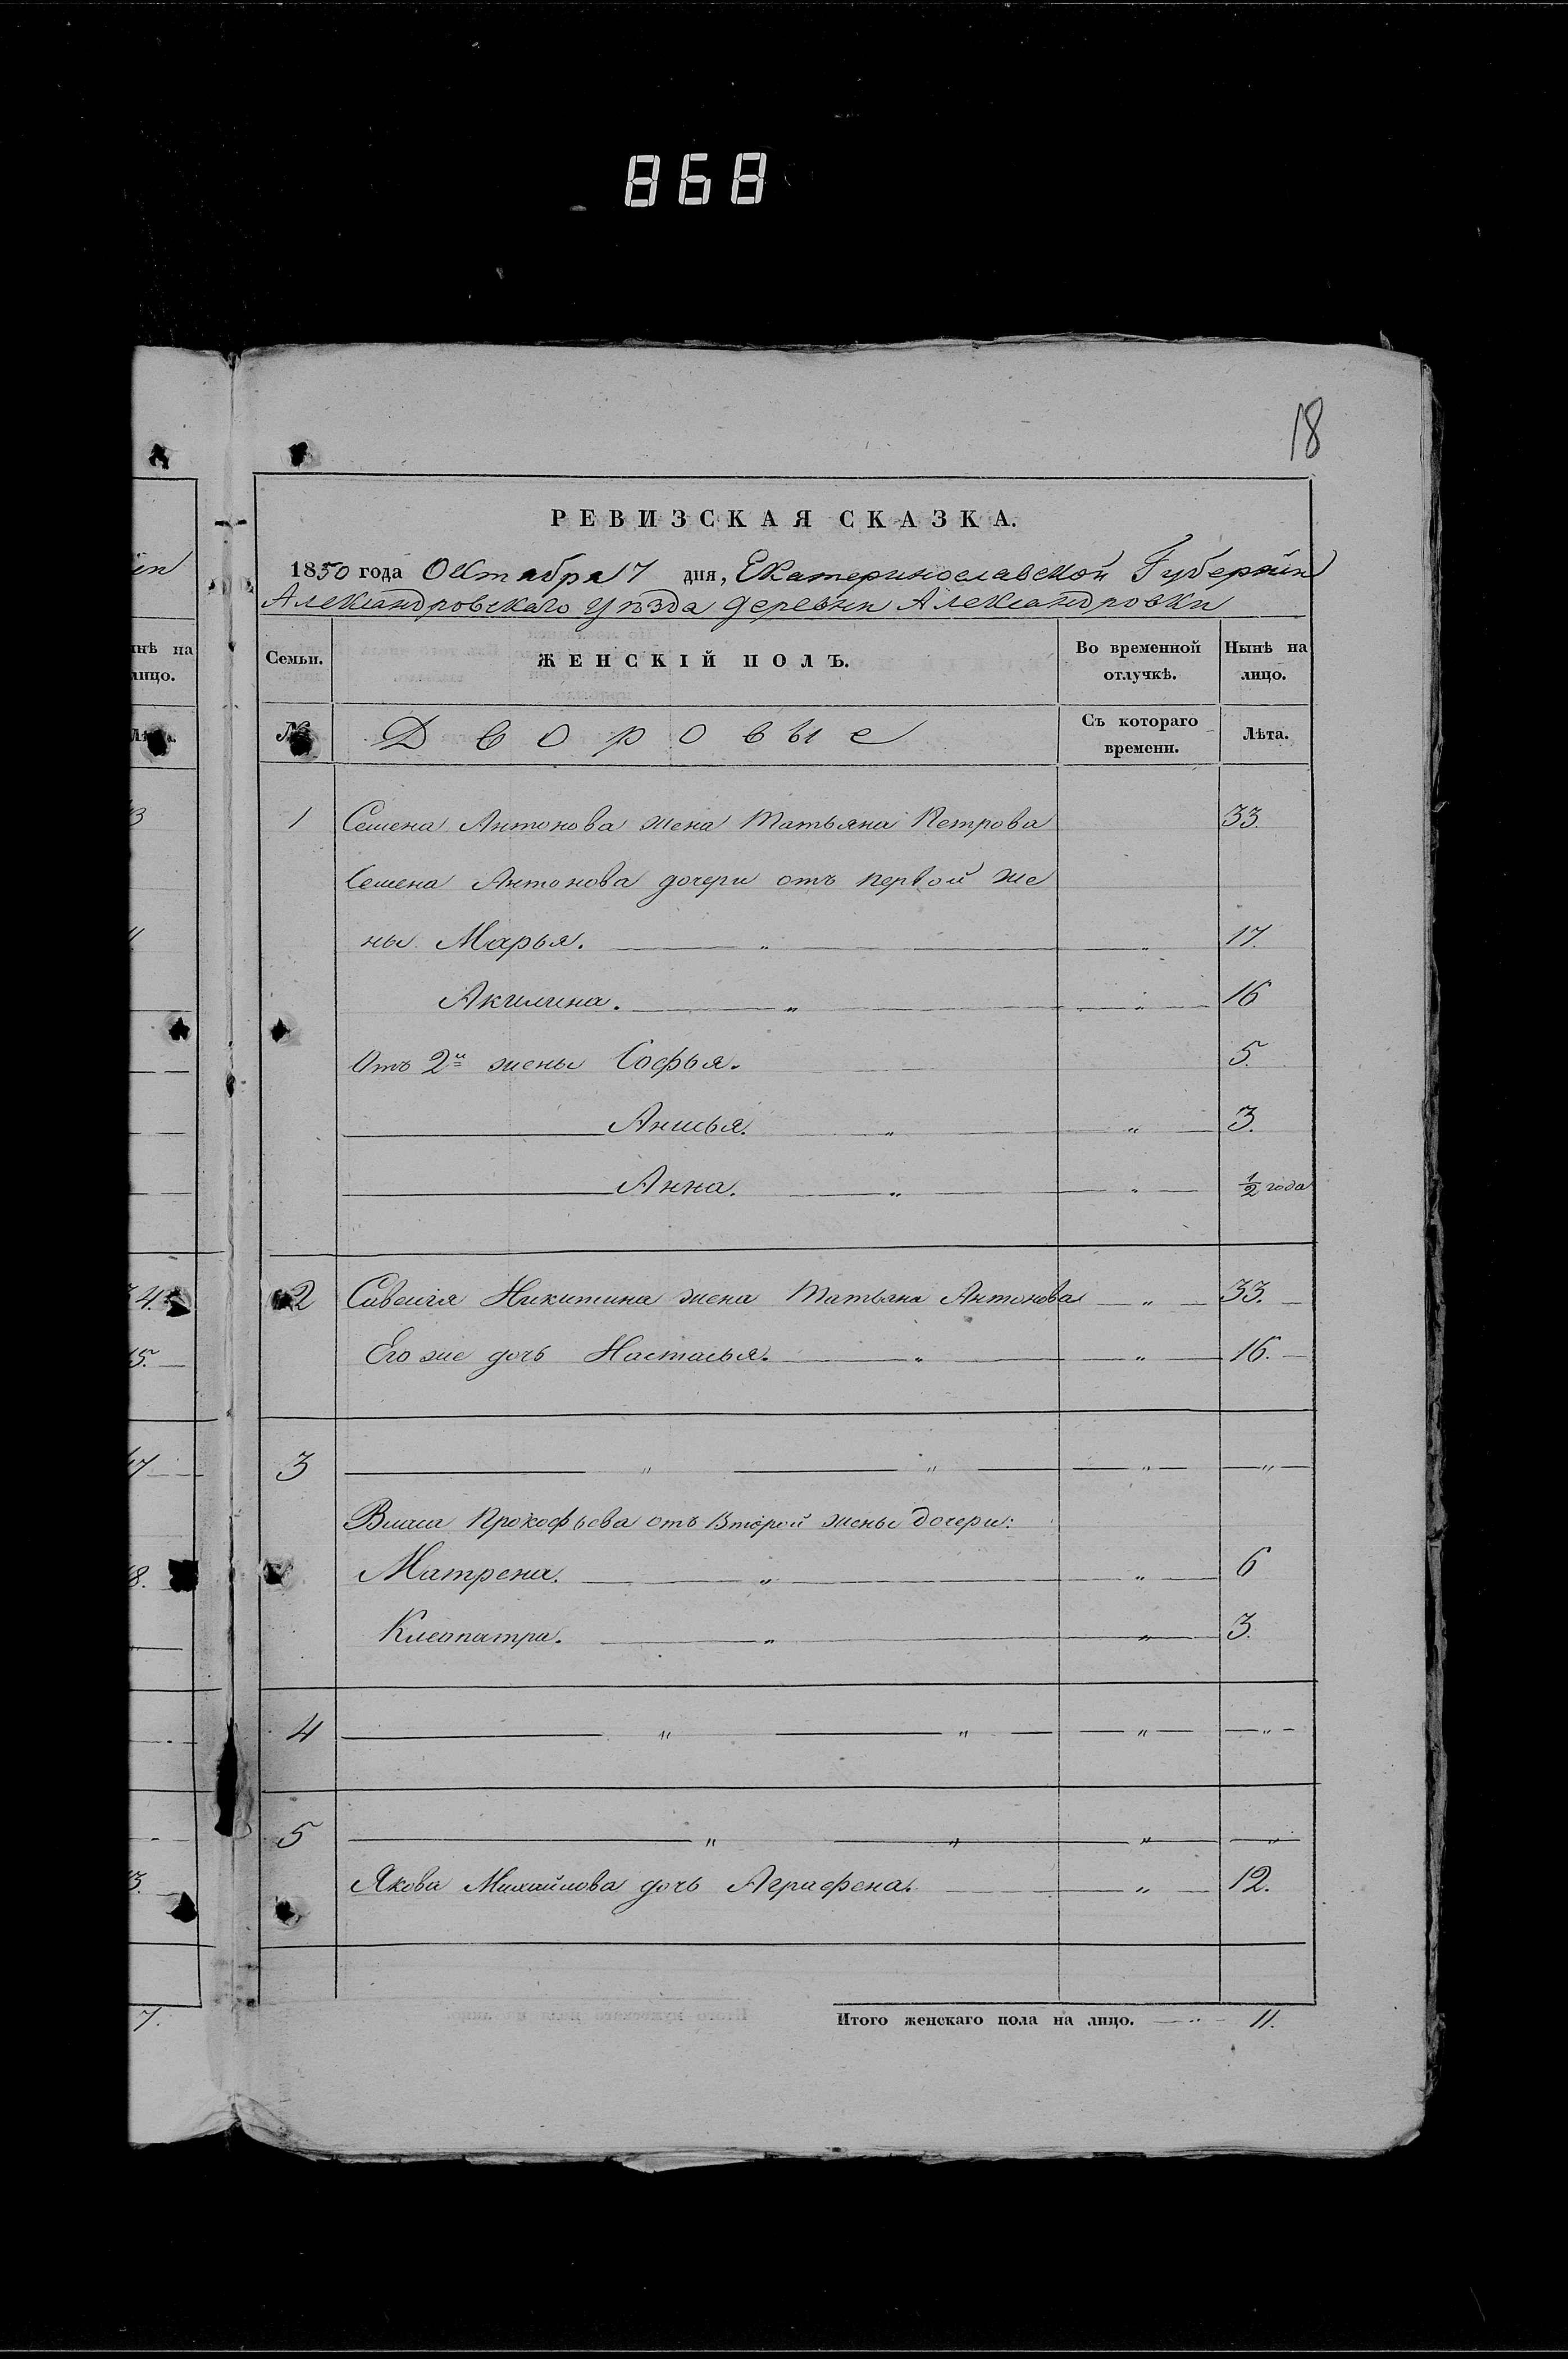 868
18
РЕВИЗСКАЯ СКАЗКА.
1850 года Октября 7 дня, Екатеринославской Губернии
Александровскаго уѣзда деревни Александровки
Семьи. ЖЕНСКІЙ ПОЛЪ. Во временной отлучкѣ. Нынѣ на лицо.
№ Дворовые Съ котораго времени. Лѣта.
1 Семена Антонова жена Татьяна Петрова 33.
Семена Антонова дочери отъ первой же
ны Марья. — „ — „ 17.
Акилина. — „ — „ — 16
Отъ 2й жены Софья. 5.
— Анисья. — „ — „ — 3.
— Анна. — „ — „ — 1/2 года
2 Савелія Никитина жена Татьяна Антонова — „ — 33.
Его же дочь Настасья. — „ — „ — 16.
3 — „ — „ — „ — „ —
Власа Прокофьева отъ Второй жены дочери:
Матрена. — „ — „ — 6
Клеопатра. — „ — „ — 3.
4 — „ — „ — „ — „ —
5 — „ — „ — „ — „ —
Якова Михайлова дочь Аграфена. — „ — 12.
Итого женскаго пола на лицо. — „ — 11.